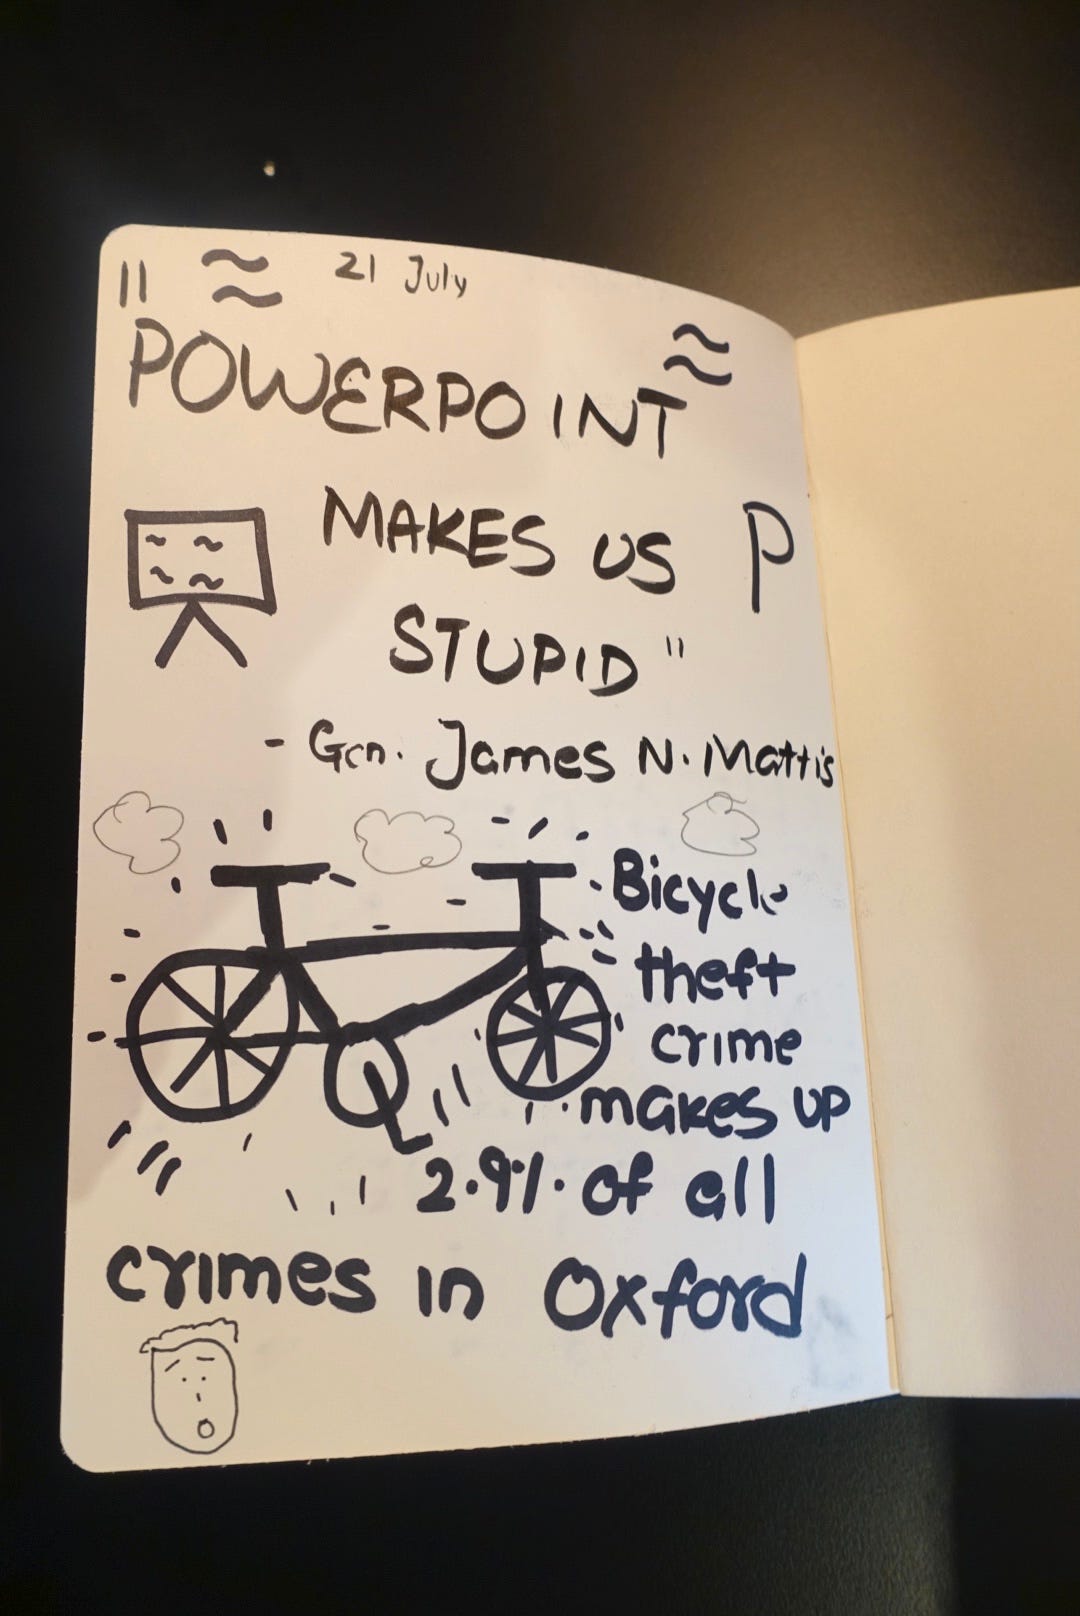 21 July
"POWERPOINT
MAKES US
P
STUPID"
- Gen. James N. Mattis
Bicycle
theft
crime
makes up
2.9% of all
crimes in Oxford